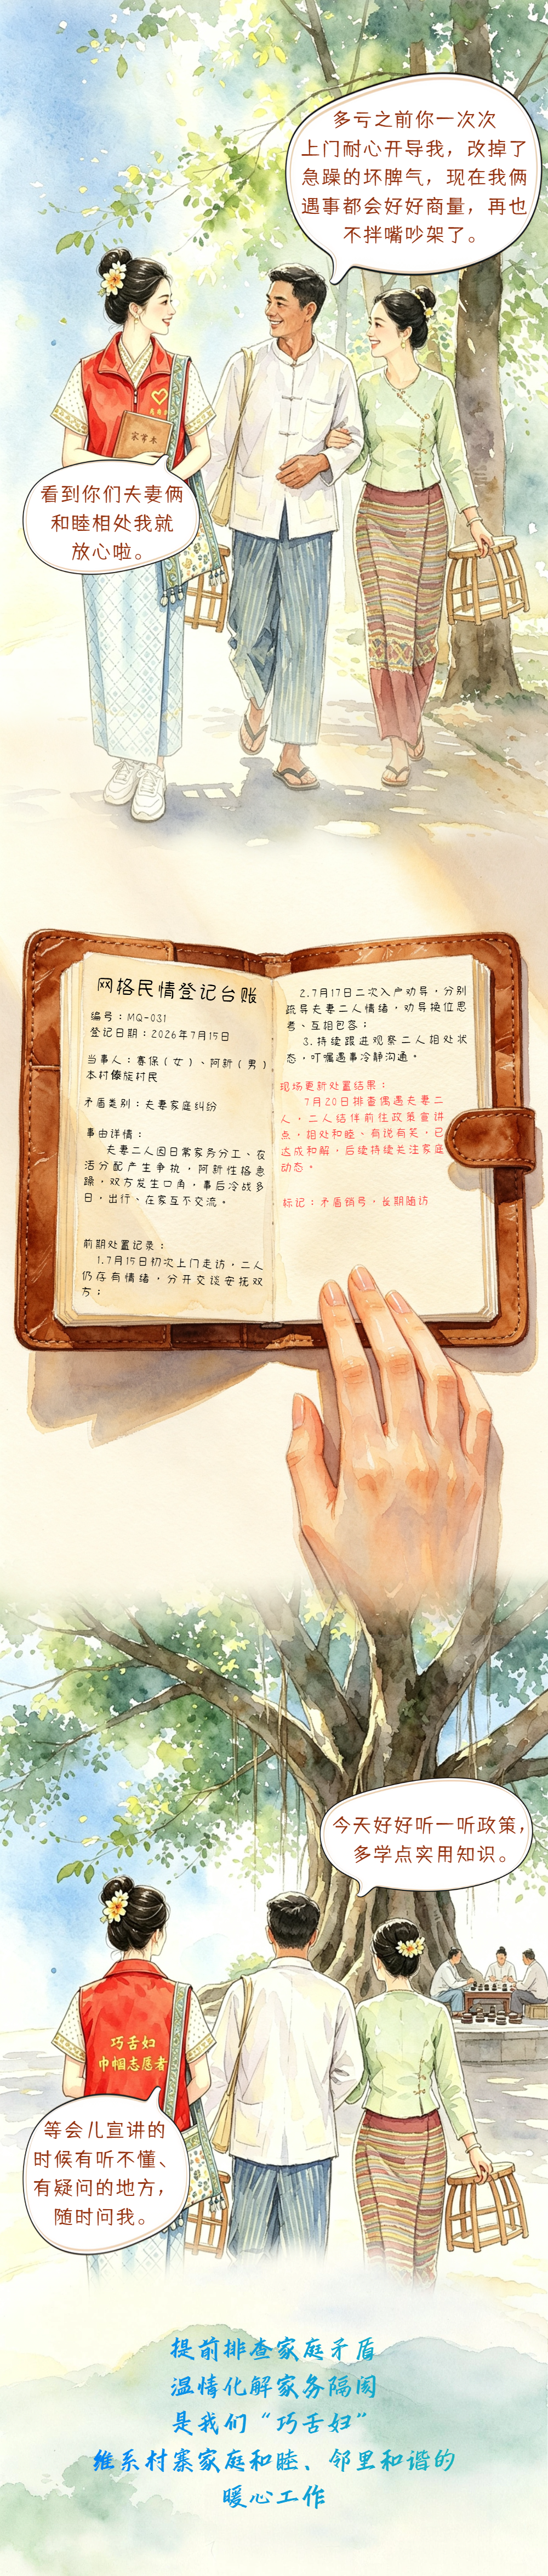 多亏之前你一次次
上门耐心开导我，改掉了
急躁的坏脾气，现在我俩
遇事都会好好商量，再也
不拌嘴吵架了。
家常本
看到你们夫妻俩
和睦相处我就
放心啦。
网格民情登记台账
编号：MQ-031
登记日期：2026年7月15日
当事人：赛保（女）、阿新（男）
本村傣族村民
矛盾类别：夫妻家庭纠纷
事由详情：
夫妻二人因日常家务分工、农
活分配产生争执，阿新性格急
躁，双方发生口角，事后冷战多
日，出行、在家互不交流。
前期处置记录：
1.7月15日初次上门走访，二人
仍存有情绪，分开交谈安抚双
方；
2.7月17日二次入户劝导，分别
疏导夫妻二人情绪，劝导换位思
考、互相包容；
3.持续跟进观察二人相处状
态，叮嘱遇事冷静沟通。
现场更新处置结果：
7月20日排查偶遇夫妻二
人，二人结伴前往政策宣讲
点，相处和睦、有说有笑，已
达成和解，后续持续关注家庭
动态。
标记：矛盾销号，长期随访
今天好好听一听政策，
多学点实用知识。
巧舌妇
巾帼志愿者
等会儿宣讲的
时候有听不懂、
有疑问的地方，
随时问我。
提前排查家庭矛盾
温情化解家务隔阂
是我们“巧舌妇”
维系村寨家庭和睦、邻里和谐的
暖心工作